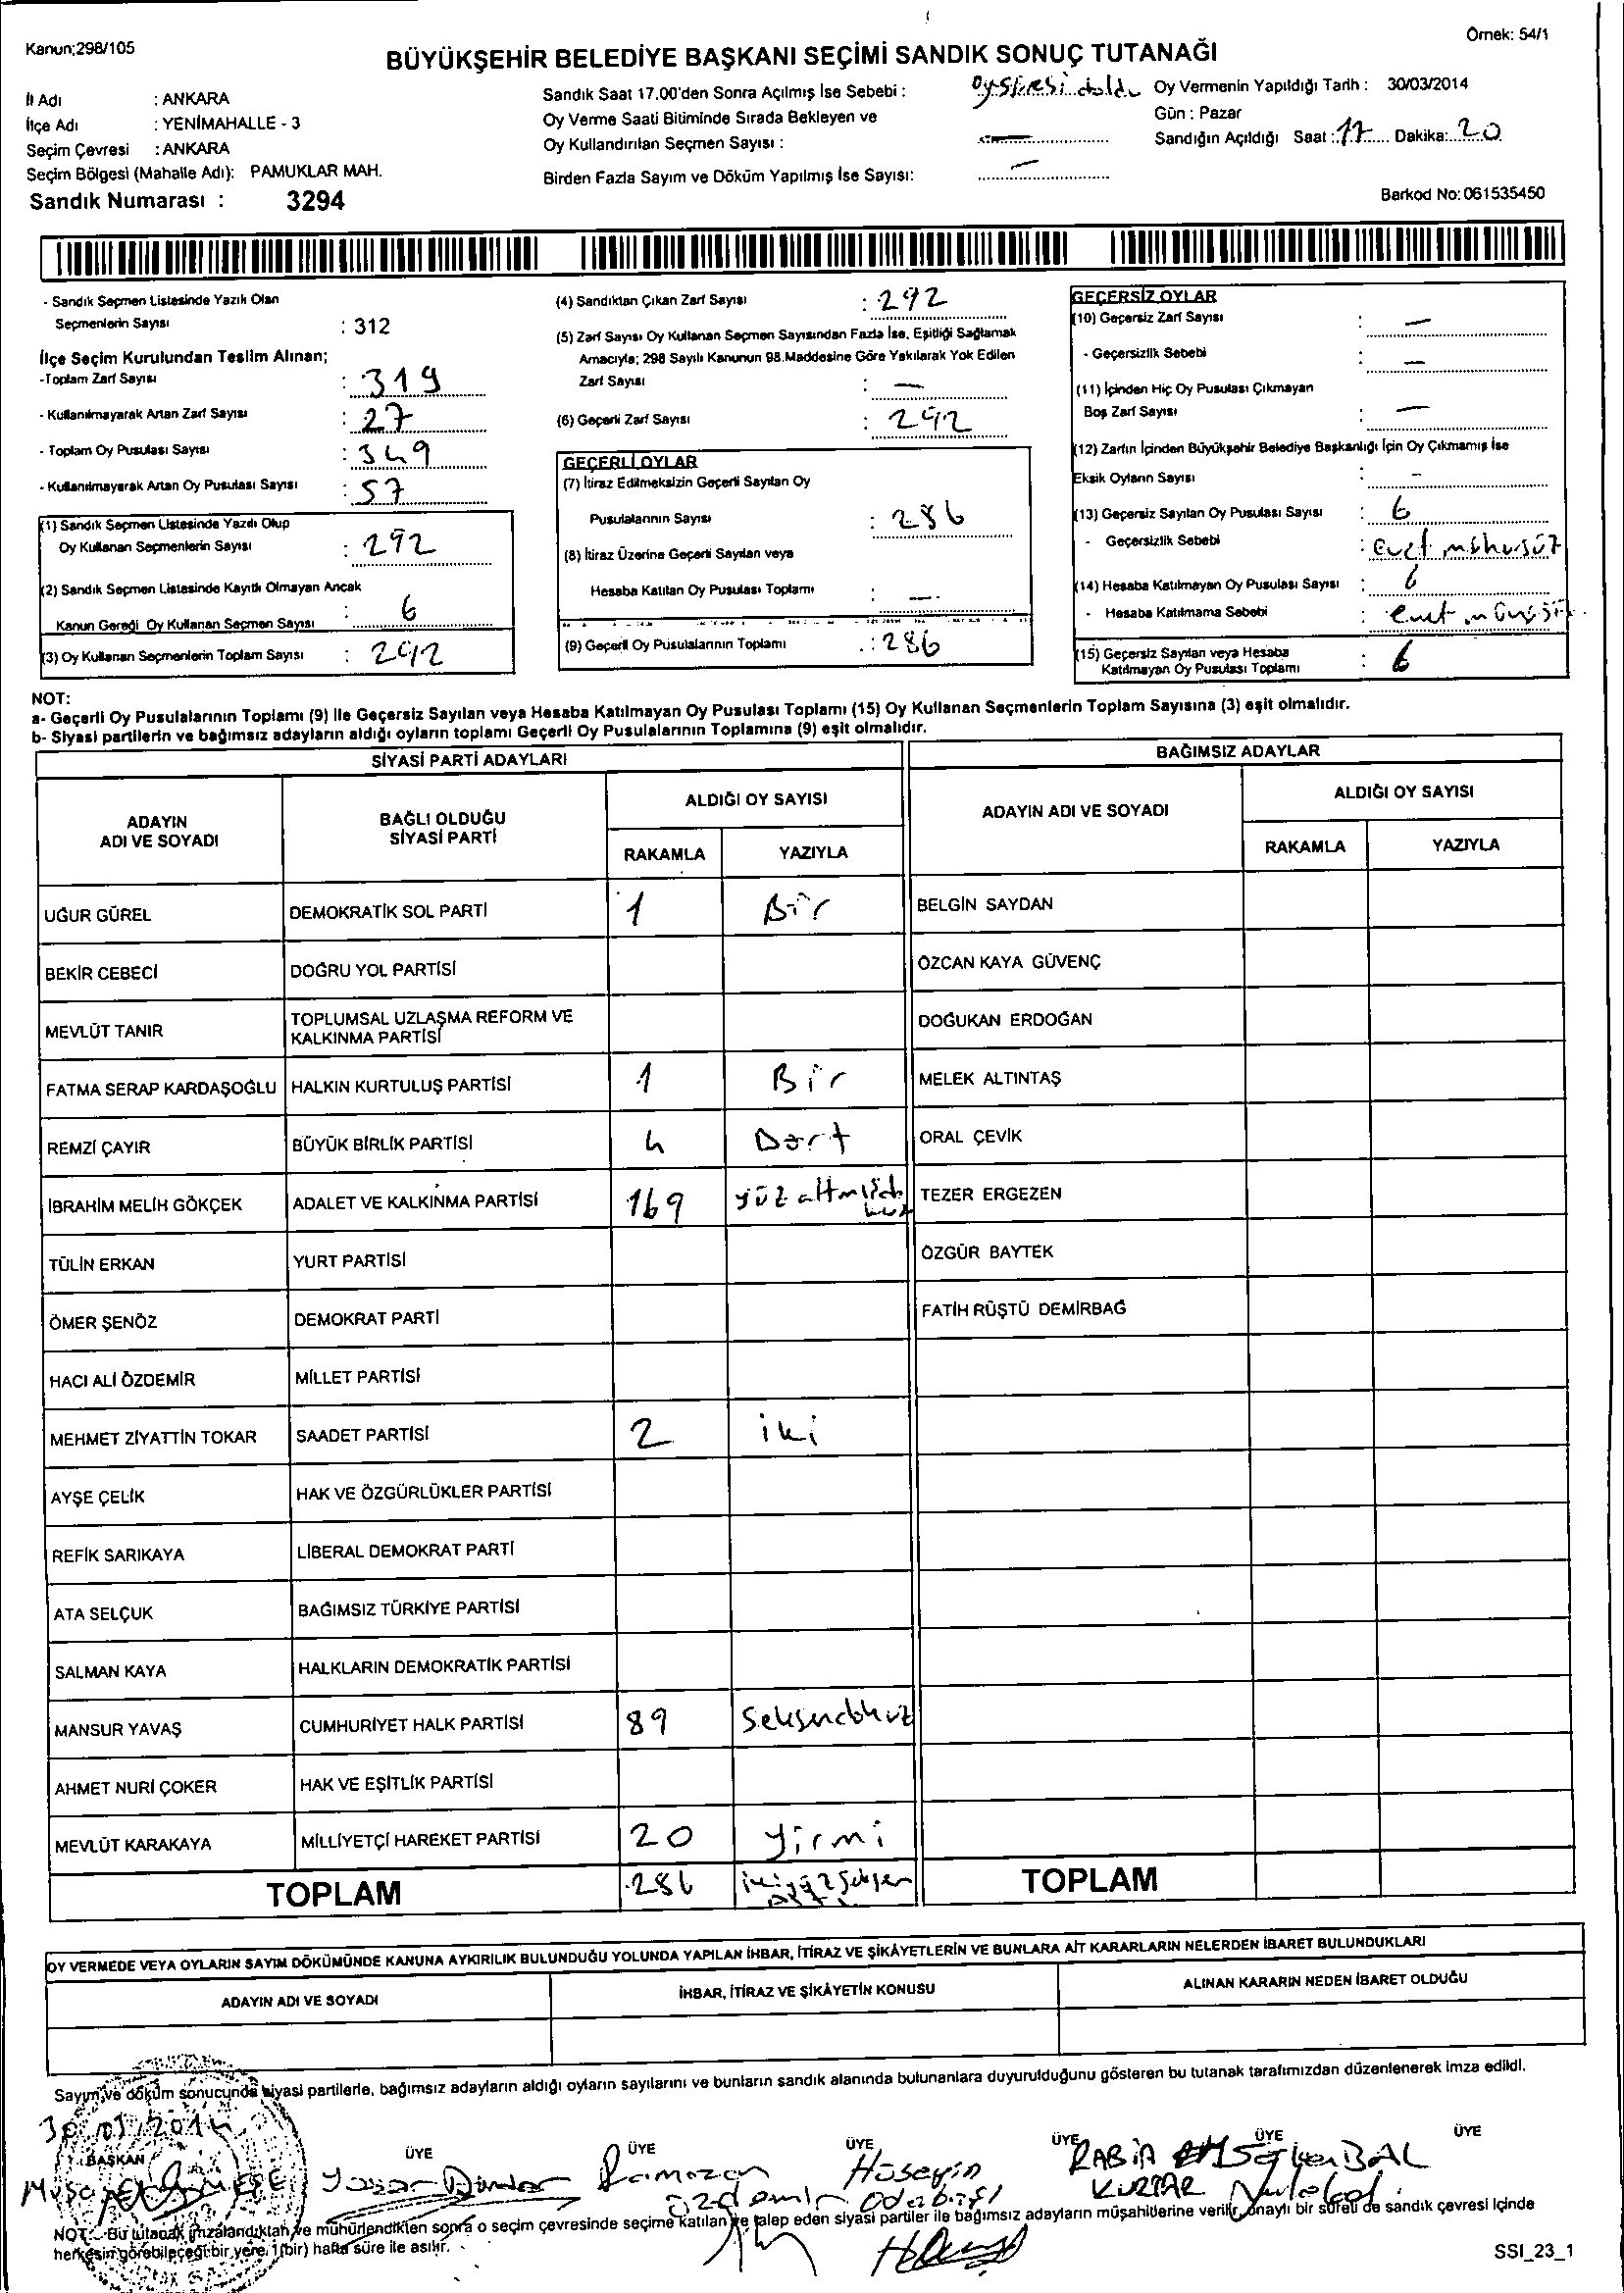 Kanun;298/105
Örnek: 54/1
BÜYÜKŞEHİR BELEDİYE BAŞKANI SEÇİMİ SANDIK SONUÇ TUTANAĞI
İl Adı : ANKARA
İlçe Adı : YENİMAHALLE - 3
Seçim Çevresi : ANKARA
Seçim Bölgesi (Mahalle Adı): PAMUKLAR MAH.
Sandık Numarası : 3294
Sandık Saat 17.00'den Sonra Açılmış İse Sebebi : oy süresi doldu
Oy Verme Saati Bitiminde Sırada Bekleyen ve
Oy Kullandırılan Seçmen Sayısı : —
Birden Fazla Sayım ve Döküm Yapılmış İse Sayısı: —
Oy Vermenin Yapıldığı Tarih : 30/03/2014
Gün : Pazar
Sandığın Açıldığı Saat : 17 Dakika: 20
Barkod No: 061535450
- Sandık Seçmen Listesinde Yazılı Olan
Seçmenlerin Sayısı : 312
İlçe Seçim Kurulundan Teslim Alınan;
-Toplam Zarf Sayısı : 319
- Kullanılmayarak Artan Zarf Sayısı : 27
- Toplam Oy Pusulası Sayısı : 349
- Kullanılmayarak Artan Oy Pusulası Sayısı : 57
(1) Sandık Seçmen Listesinde Yazılı Olup
Oy Kullanan Seçmenlerin Sayısı : 292
(2) Sandık Seçmen Listesinde Kayıtlı Olmayan Ancak
Kanun Gereği Oy Kullanan Seçmen Sayısı : 6
(3) Oy Kullanan Seçmenlerin Toplam Sayısı : 292
(4) Sandıktan Çıkan Zarf Sayısı : 292
(5) Zarf Sayısı Oy Kullanan Seçmen Sayısından Fazla İse, Eşitliği Sağlamak
Amacıyla; 298 Sayılı Kanunun 98.Maddesine Göre Yakılarak Yok Edilen
Zarf Sayısı : —
(6) Geçerli Zarf Sayısı : 292
GEÇERLİ OYLAR
(7) İtiraz Edilmeksizin Geçerli Sayılan Oy
Pusulalarının Sayısı : 286
(8) İtiraz Üzerine Geçerli Sayılan veya
Hesaba Katılan Oy Pusulası Toplamı : —
(9) Geçerli Oy Pusulalarının Toplamı : 286
GEÇERSİZ OYLAR
(10) Geçersiz Zarf Sayısı : —
- Geçersizlik Sebebi : —
(11) İçinden Hiç Oy Pusulası Çıkmayan
Boş Zarf Sayısı : —
(12) Zarfın İçinden Büyükşehir Belediye Başkanlığı İçin Oy Çıkmamış İse
Eksik Oyların Sayısı : -
(13) Geçersiz Sayılan Oy Pusulası Sayısı : 6
- Geçersizlik Sebebi : Evet mühürsüz
(14) Hesaba Katılmayan Oy Pusulası Sayısı : 6
- Hesaba Katılmama Sebebi : evet
(15) Geçersiz Sayılan veya Hesaba
Katılmayan Oy Pusulası Toplamı : 6
NOT:
a- Geçerli Oy Pusulalarının Toplamı (9) İle Geçersiz Sayılan veya Hesaba Katılmayan Oy Pusulası Toplamı (15) Oy Kullanan Seçmenlerin Toplam Sayısına (3) eşit olmalıdır.
b- Siyasi partilerin ve bağımsız adayların aldığı oyların toplamı Geçerli Oy Pusulalarının Toplamına (9) eşit olmalıdır.
SİYASİ PARTİ ADAYLARI
BAĞIMSIZ ADAYLAR
ADAYIN ADI VE SOYADI
BAĞLI OLDUĞU SİYASİ PARTİ
ALDIĞI OY SAYISI
RAKAMLA YAZIYLA
ADAYIN ADI VE SOYADI
ALDIĞI OY SAYISI
RAKAMLA YAZIYLA
UĞUR GÜREL DEMOKRATİK SOL PARTİ 1 Bir BELGİN SAYDAN
BEKİR CEBECİ DOĞRU YOL PARTİSİ ÖZCAN KAYA GÜVENÇ
MEVLÜT TANIR TOPLUMSAL UZLAŞMA REFORM VE KALKINMA PARTİSİ DOĞUKAN ERDOĞAN
FATMA SERAP KARDAŞOĞLU HALKIN KURTULUŞ PARTİSİ 1 Bir MELEK ALTINTAŞ
REMZİ ÇAYIR BÜYÜK BİRLİK PARTİSİ 4 Dört ORAL ÇEVİK
İBRAHİM MELİH GÖKÇEK ADALET VE KALKINMA PARTİSİ 169 yüz altmışdokuz TEZER ERGEZEN
TÜLİN ERKAN YURT PARTİSİ ÖZGÜR BAYTEK
ÖMER ŞENÖZ DEMOKRAT PARTİ FATİH RÜŞTÜ DEMİRBAĞ
HACI ALİ ÖZDEMİR MİLLET PARTİSİ
MEHMET ZİYATTİN TOKAR SAADET PARTİSİ 2 iki
AYŞE ÇELİK HAK VE ÖZGÜRLÜKLER PARTİSİ
REFİK SARIKAYA LİBERAL DEMOKRAT PARTİ
ATA SELÇUK BAĞIMSIZ TÜRKİYE PARTİSİ
SALMAN KAYA HALKLARIN DEMOKRATİK PARTİSİ
MANSUR YAVAŞ CUMHURİYET HALK PARTİSİ 89 Seksendokuz
AHMET NURİ ÇOKER HAK VE EŞİTLİK PARTİSİ
MEVLÜT KARAKAYA MİLLİYETÇİ HAREKET PARTİSİ 20 yirmi
TOPLAM 286 ikiyüzseksen altı TOPLAM
OY VERMEDE VEYA OYLARIN SAYIM DÖKÜMÜNDE KANUNA AYKIRILIK BULUNDUĞU YOLUNDA YAPILAN İHBAR, İTİRAZ VE ŞİKÂYETLERİN VE BUNLARA AİT KARARLARIN NELERDEN İBARET BULUNDUKLARI
ADAYIN ADI VE SOYADI İHBAR, İTİRAZ VE ŞİKÂYETİN KONUSU ALINAN KARARIN NEDEN İBARET OLDUĞU
Sayım ve döküm sonucunda siyasi partilerle, bağımsız adayların aldığı oyların sayılarını ve bunların sandık alanında bulunanlara duyurulduğunu gösteren bu tutanak tarafımızdan düzenlenerek imza edildi.
30/03/2014
BAŞKAN ÜYE ÜYE ÜYE ÜYE ÜYE ÜYE
Musa Yaşar Ramazan Hüseyin RABİA BAL
özdemir Odabaşı KURTAR
NOT:- Bu tutanak imzalandıktan ve mühürlendikten sonra o seçim çevresinde seçime katılan ve talep eden siyasi partiler ile bağımsız adayların müşahitlerine verilir, onaylı bir sureti de sandık çevresi içinde
herkesin görebileceği bir yere, 1(bir) hafta süre ile asılır.
SSI_23_1